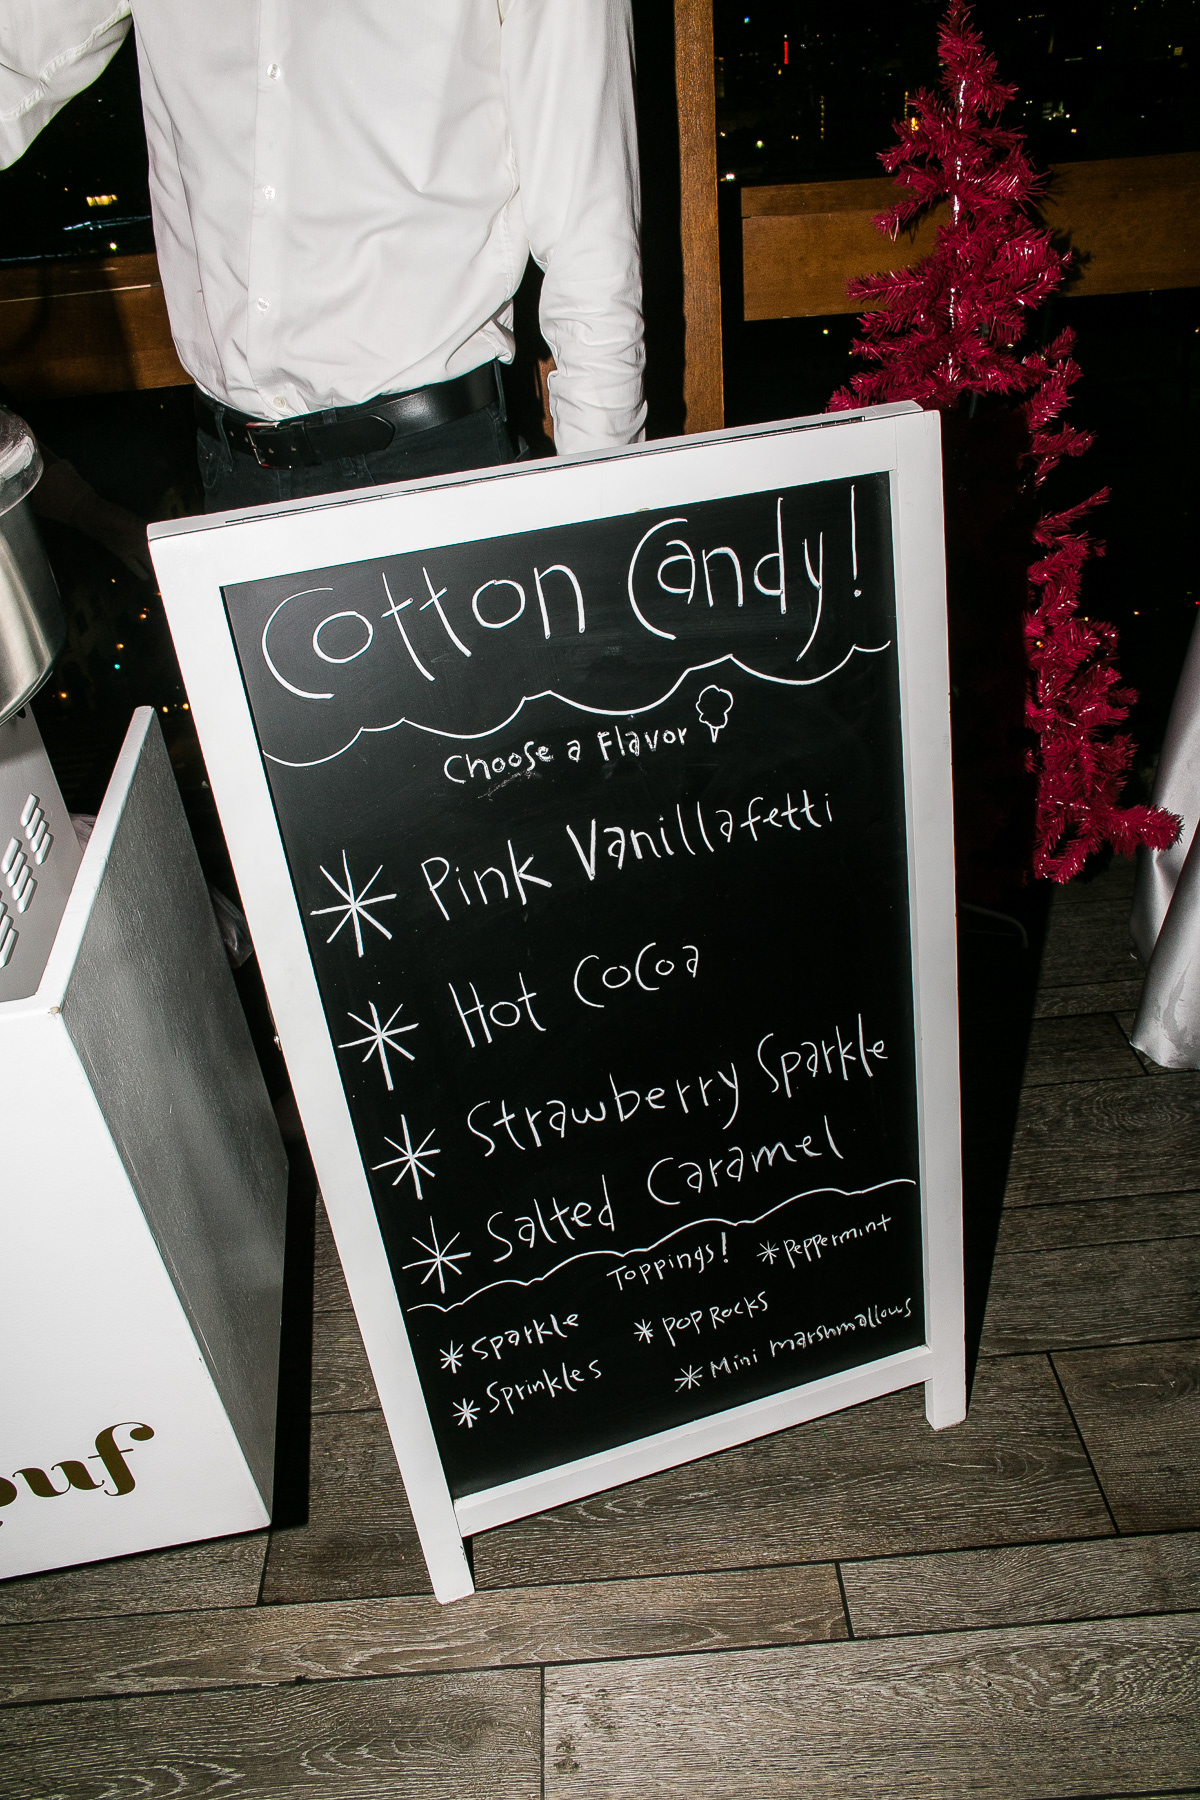 Cotton Candy!
Choose a Flavor
Pink Vanillafetti
Hot Cocoa
Strawberry Sparkle
Salted Caramel
Toppings!
Peppermint
Sparkle
Pop Rocks
Sprinkles
Mini marshmallows